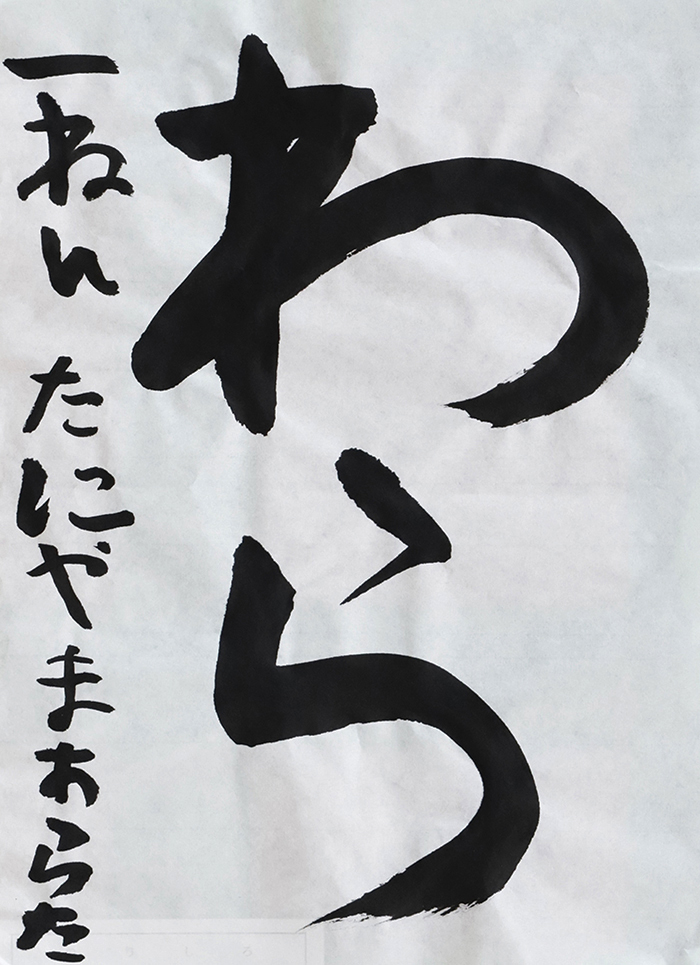 わら
一ねん たにやまあらた